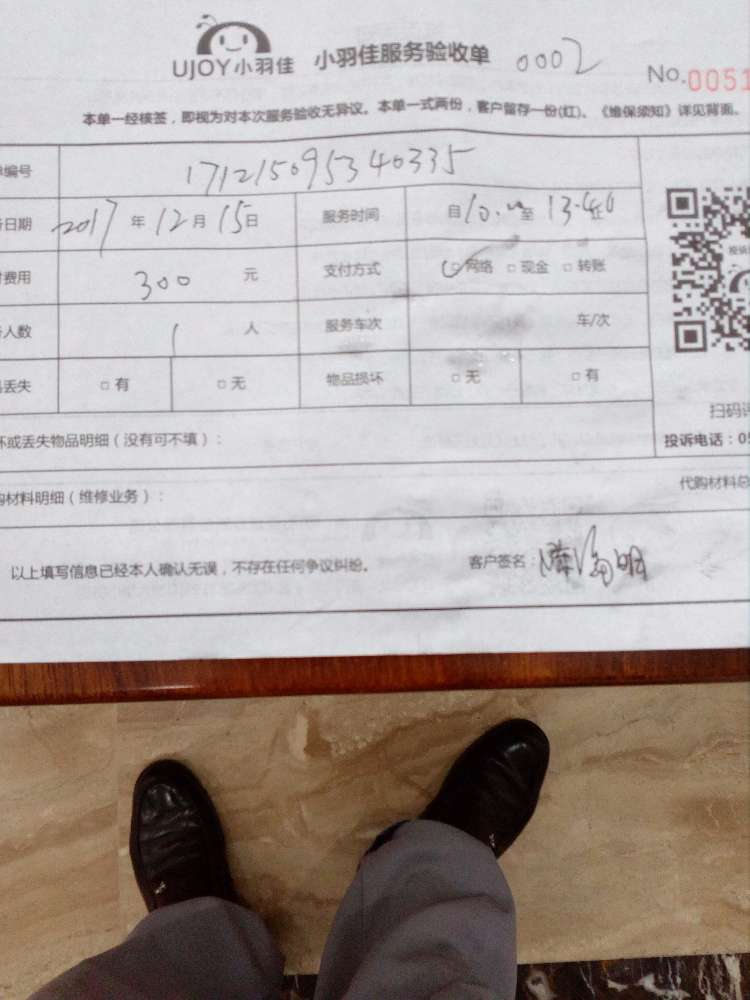 UJOY小羽佳 小羽佳服务验收单 0002 No.0051
本单一经核签，即视为对本次服务验收无异议。本单一式两份，客户留存一份(红)。《维保须知》详见背面。
编号 171215095340335
日期 2017 年 12 月 15 日 服务时间 自 10: 至 13:40
费用 300 元 支付方式 ☑网络 □现金 □转账
人数 1 人 服务车次 车/次
丢失 □有 □无 物品损坏 □无 □有
扫码
坏或丢失物品明细（没有可不填）： 投诉电话：05
购材料明细（维修业务）： 代购材料总
以上填写信息已经本人确认无误，不存在任何争议纠纷。 客户签名：